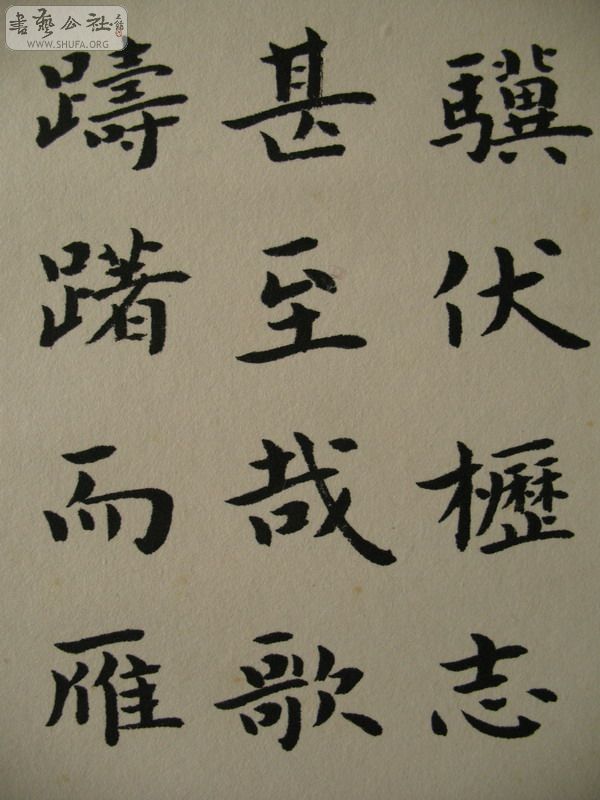 驥伏櫪志
甚至哉歌
躊躇而雁
書藝公社
WWW.SHUFA.ORG